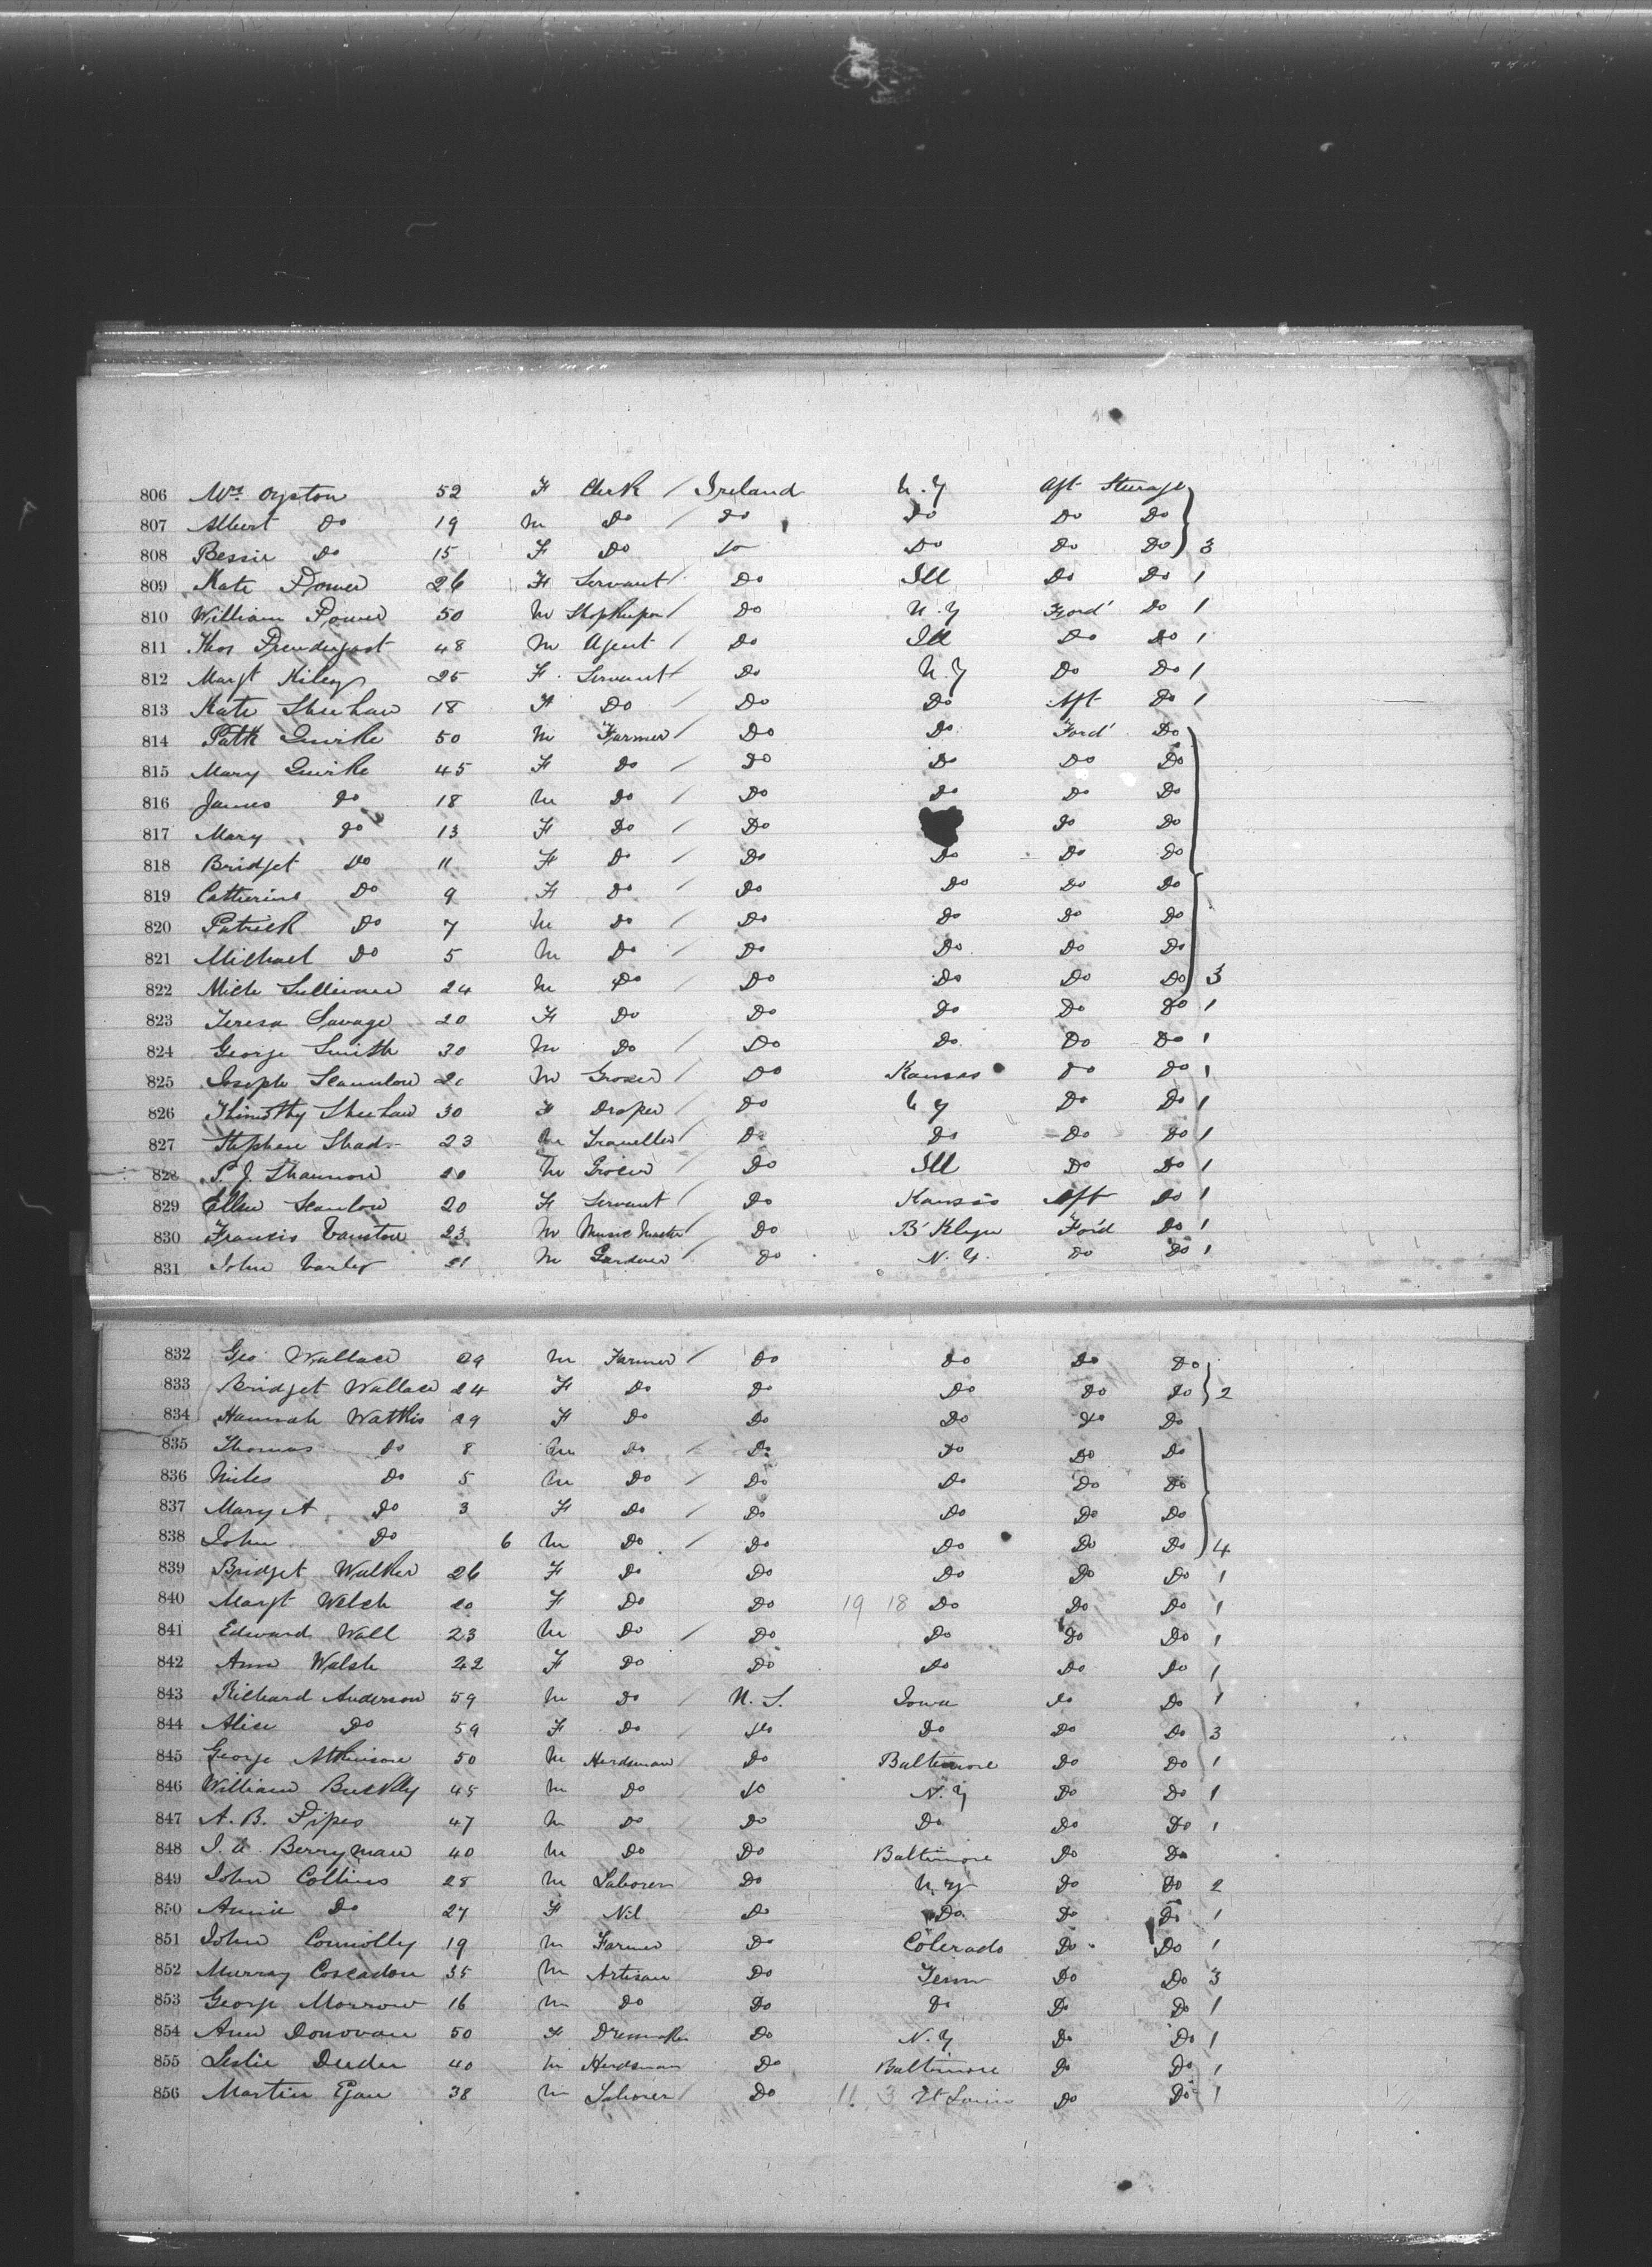 806 Mrs Oyston 52 F Clerk / Ireland N.Y Aft Sterage
807 Albert Do 19 M Do / Do Do Do Do
808 Bessie Do 15 F Do Do Do Do Do 3
809 Kate Power 26 F Servant / Do Ill Do Do 1
810 William Power 50 M Shopkeeper / Do N.Y Ford' Do 1
811 Thos Prendergast 48 M Agent / Do Ill Do Do 1
812 Margt Kiley 25 F Servant / Do N.Y Do Do 1
813 Kate Sheehan 18 F Do Do Do Aft Do 1
814 Patk Quirke 50 M Farmer / Do Do Ford' Do
815 Mary Quirke 45 F Do / Do Do Do Do
816 James Do 18 M Do / Do Do Do Do
817 Mary Do 13 F Do / Do Do Do
818 Bridget Do 11 F Do / Do Do Do Do
819 Catherine Do 9 F Do / Do Do Do Do
820 Patrick Do 7 M Do / Do Do Do Do
821 Michael Do 5 M Do / Do Do Do Do
822 Mich Sullivan 24 M Do / Do Do Do Do 3
823 Teresa Savage 20 F Do Do Do Do Do 1
824 George Smith 30 M Do / Do Do Do Do 1
825 Joseph Scanlon M Grocer / Do Kansas Do Do 1
826 Thimothy Sheehan 30 F Draper / Do N Y Do Do 1
827 Stephen Shad 23 M Traveller / Do Do Do Do 1
828 P. J. Shannon 20 M Grocer / Do Ill Do Do 1
829 Ellen Scanlon 20 F Servant / Do Kansas Aft Do 1
830 Francis Vanston 23 M Music Master / Do B'Klyn Ford Do 1
831 John Varley 21 M Gardner / Do N.Y. Do Do 1
832 Geo Wallace 29 M Farmer / Do Do Do Do
833 Bridget Wallace 24 F Do Do Do Do Do 2
834 Hannah Watkis 29 F Do Do Do Do Do
835 Thomas Do 8 M Do / Do Do Do Do
836 Miles Do 5 M Do / Do Do Do Do
837 Mary A Do 3 F Do / Do Do Do Do
838 John Do 6 M Do / Do Do Do Do 4
839 Bridget Walker 26 F Do Do Do Do Do 1
840 Margt Welch 20 F Do Do 19 18 Do Do Do 1
841 Edward Wall 23 M Do / Do Do Do Do 1
842 Ann Walsh 22 F Do Do Do Do Do 1
843 Richard Anderson 59 M Do / U.S. Iowa Do Do 1
844 Alice Do 59 F Do / Do Do Do Do 3
845 George Atkinson 50 M Herdsman Do Baltimore Do Do 1
846 William Buckley 45 M Do Do N.Y Do Do 1
847 A. B. Pipes 47 M Do Do Do Do Do 1
848 Berryman 40 M Do Do Baltimore Do Do
849 John Collins 28 M Laborer Do N.Y Do Do 2
850 Annie Do 27 F Nil Do Do Do Do 1
851 John Connolly 19 M Farmer Do Colerado Do Do 1
852 Murray Coscadon 35 M Artisan Do Tenn Do Do 3
853 George Morrow 16 M Do Do Do Do Do 1
854 Ann Donovan 50 F Dressmaker Do N.Y Do Do 1
855 Leslie Deeder 40 M Herdsman Do Baltimore Do Do 1
856 Martin Egan 38 M Laborer / Do 11 3 St Louis Do Do 1